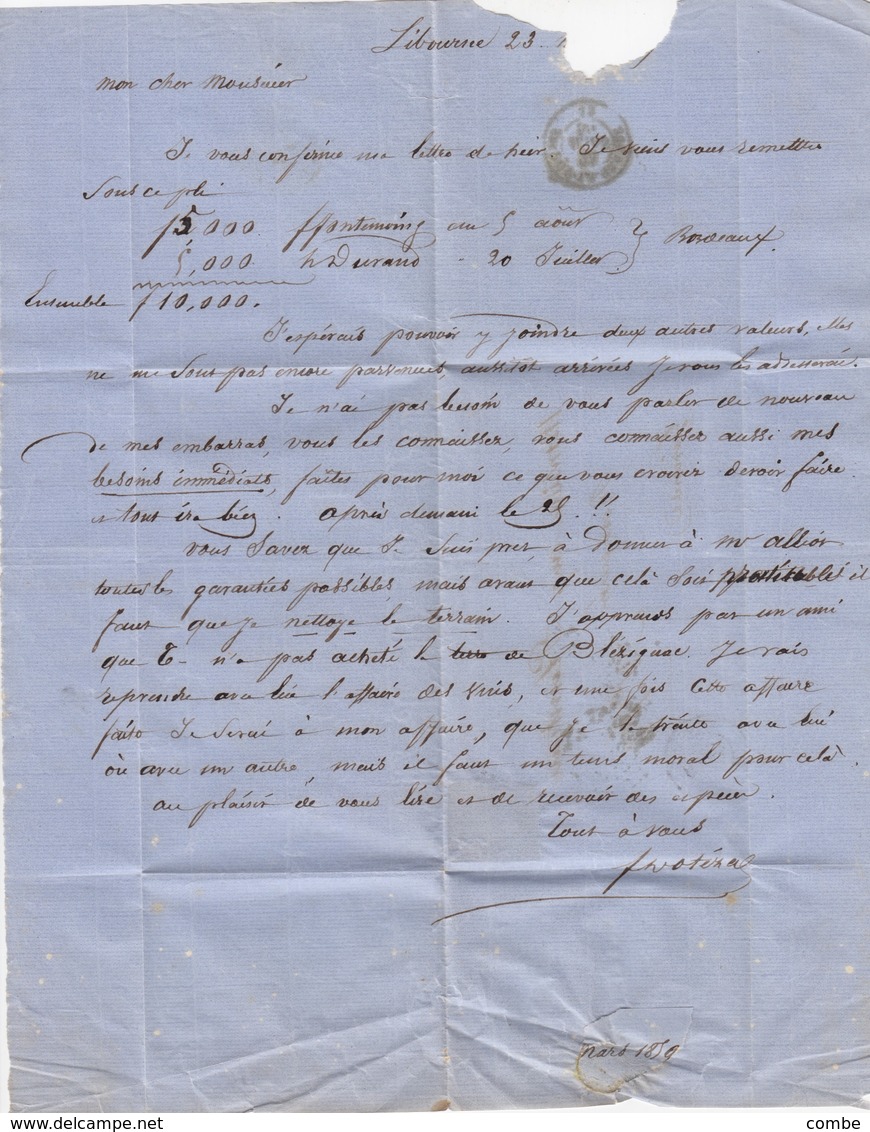 Libourne 23
mon cher Monsieur
Je vous confirme ma lettre de hier. Je viens vous remettre
Sous ce pli
f 5,000 ffontemoing au 5 août } Bordeaux.
5,000 h Durand - 20 Juillet
Ensemble f 10,000.
J'espérais pouvoir y joindre deux autres valeurs, elles
ne me sont pas encore parvenues, aussitôt arrivées je vous les adresserai.
Je n'ai pas besoin de vous parler de nouveau
de mes embarras, vous les connaissez, vous connaissez aussi mes
besoins immédiats, faites pour moi ce que vous croirez devoir faire
et tout ira bien. après demain le 25.!!
vous savez que je suis pret à donner à mr
toutes les garanties possibles mais avant que celà soit il
faut que je nettoye le terrain. J'apprends par un ami
que T- n'a pas acheté le de Blézignac. Je vais
reprendre avec lui l'affaire des vins, et une fois cette affaire
faite Je serai à mon affaire, que je traite avec lui
où avec un autre, mais il faut un tems moral pour celà.
au plaisir de vous lire et de recevoir des espèces.
Tout à vous
mars 1859
combe